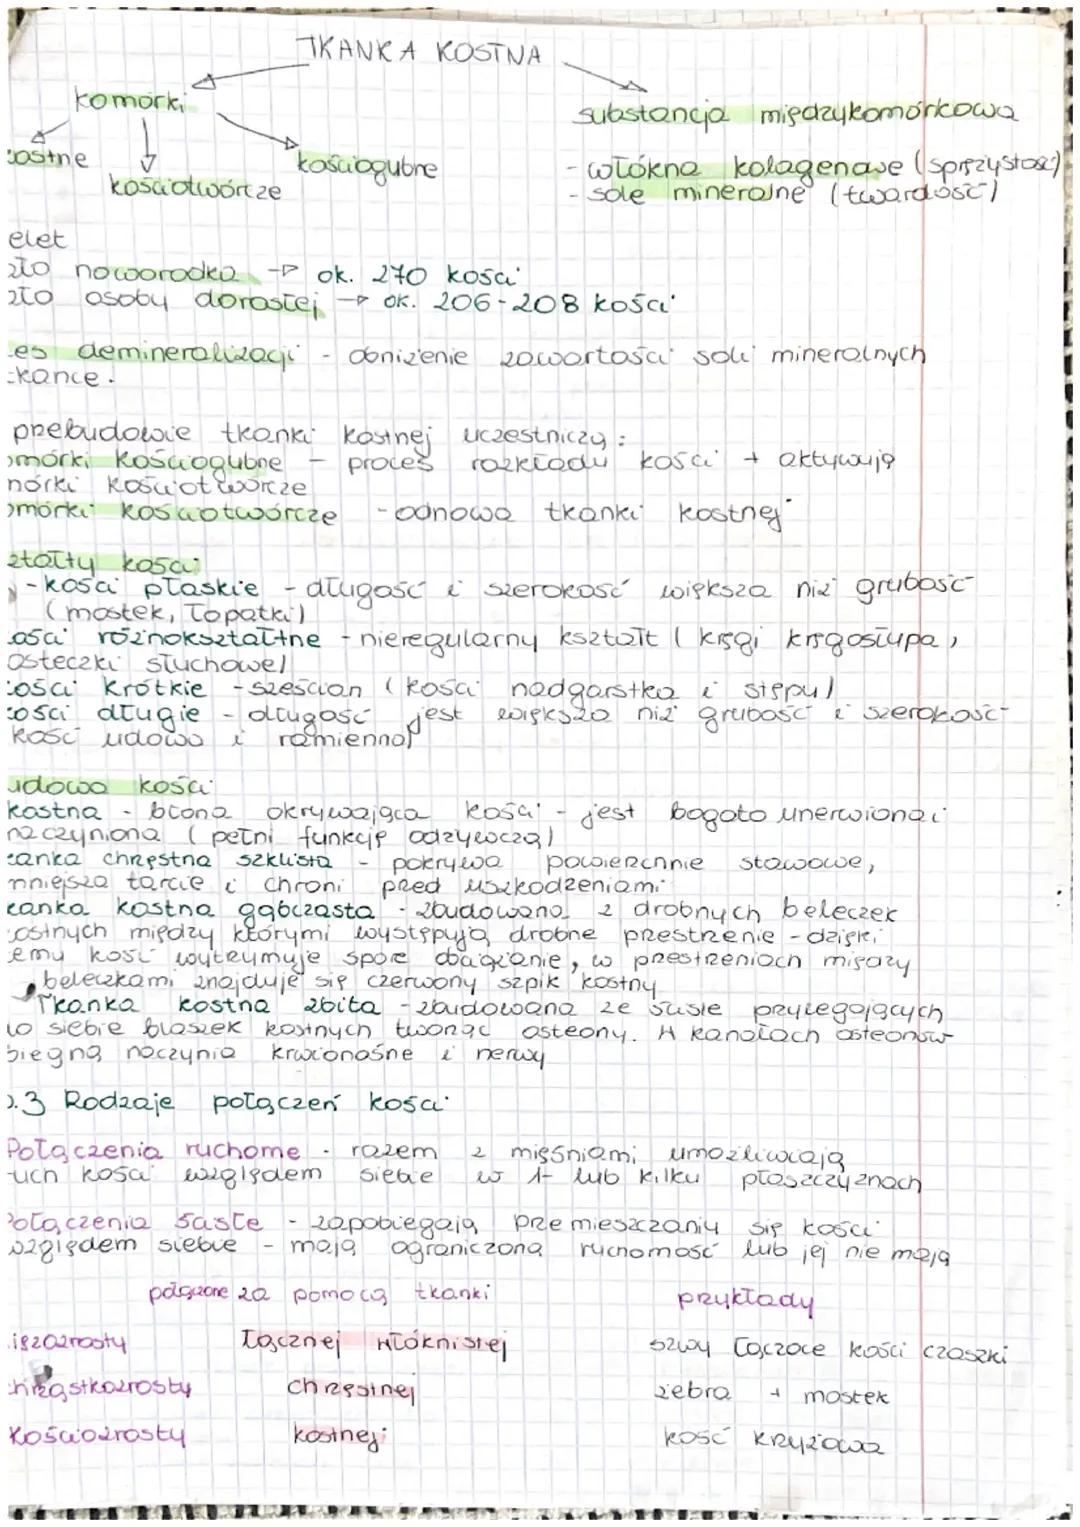 TKANKA KOSTNA
komórki
substancja międzykomórkowa
kostne
kościogubne
- włókna kolagenowe (sprężystość)
kościotwórcze
- sole mineralne (twardość)
elet
noworodka → ok. 270 kości
osoby dorosłej → ok. 206-208 kości
es demineralizacji - obniżenie zawartości soli mineralnych
tkance.
przebudowie tkanki kostnej uczestniczą:
omórki kościogubne - proces rozkładu kości + aktywują
mórki kościotwórcze
omórki kościotwórcze - odnowa tkanki kostnej
ształty kości
- kości płaskie - długość i szerokość większa niż grubość
(mostek, łopatki)
ości różnokształtne - nieregularny kształt (kręgi kręgosłupa,
osteczki słuchowe)
kości krótkie - sześcian (kości nadgarstka i stępu)
kości długie - długość jest większa niż grubość i szerokość
kość udowa i ramienna)
udowa kości
kostna - błona okrywająca kości - jest bogato unerwiona i
naczyniona (pełni funkcję odżywczą)
kanka chrzęstna szklista - pokrywa powierzchnie stawowe,
mniejsza tarcie i chroni przed uszkodzeniami
kanka kostna gąbczasta - zbudowana z drobnych beleczek
kostnych między którymi występują drobne przestrzenie - dzięki
temu kość wytrzymuje spore obciążenie, w przestrzeniach między
beleczkami znajduje się czerwony szpik kostny
Tkanka kostna zbita - zbudowana ze ściśle przylegających
do siebie blaszek kostnych tworząc osteony. W kanałach osteonów
biegną naczynia krwionośne i nerwy
.3 Rodzaje połączeń kości
Połączenia ruchome - razem z mięśniami umożliwiają
ruch kości względem siebie w 1 lub kilku płaszczyznach
Połączenia ścisłe - zapobiegają przemieszczaniu się kości
względem siebie - mają ograniczoną ruchomość lub jej nie mają
połączone za pomocą tkanki
przykłady
ięzozrosty
łącznej włóknistej
szwy łączące kości czaszki
chrząstkozrosty
chrzęstnej
żebra + mostek
kościozrosty
kostnej
kość krzyżowa